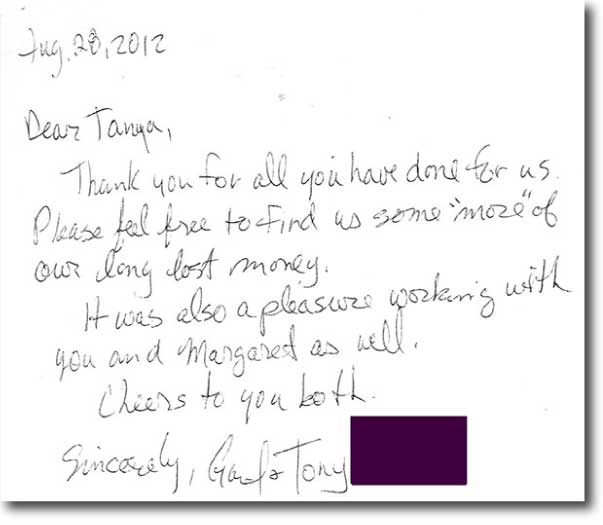 Aug. 28, 2012
Dear Tanya,
Thank you for all you have done for us.
Please feel free to find us some "more" of
our long lost money.
It was also a pleasure working with
you and Margaret as well.
Cheers to you both.
Sincerely, Tony